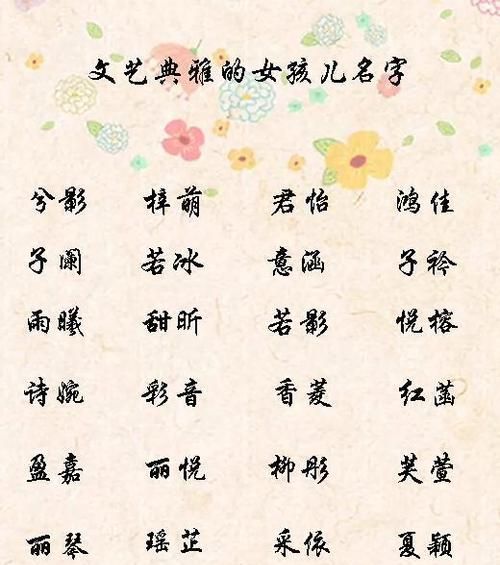 文艺典雅的女孩儿名字
兮影 梓萌 君怡 鸿佳
子阑 若冰 意涵 子衿
雨曦 甜昕 若影 悦榕
诗婉 彩音 香菱 红菡
盈嘉 丽悦 柳彤 芙萱
丽琴 瑶芷 采依 夏颖